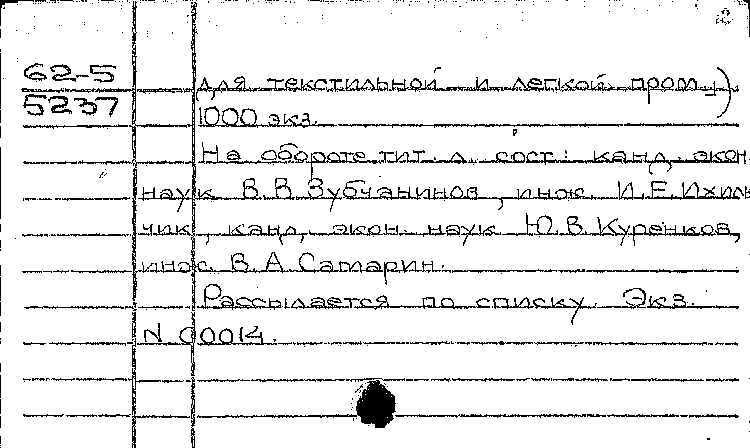 2
62-5 для текстильной и легкой пром-)
5237 1000 экз.
На обороте тит. л. сост: канд. экон.
наук В.В.Зубчанинов, инж. И.Е.Ихиль
чик, канд. экон. наук Ю.В.Куренков,
инж. В.А.Самарин.
Рассылается по списку. Экз.
N 00014.